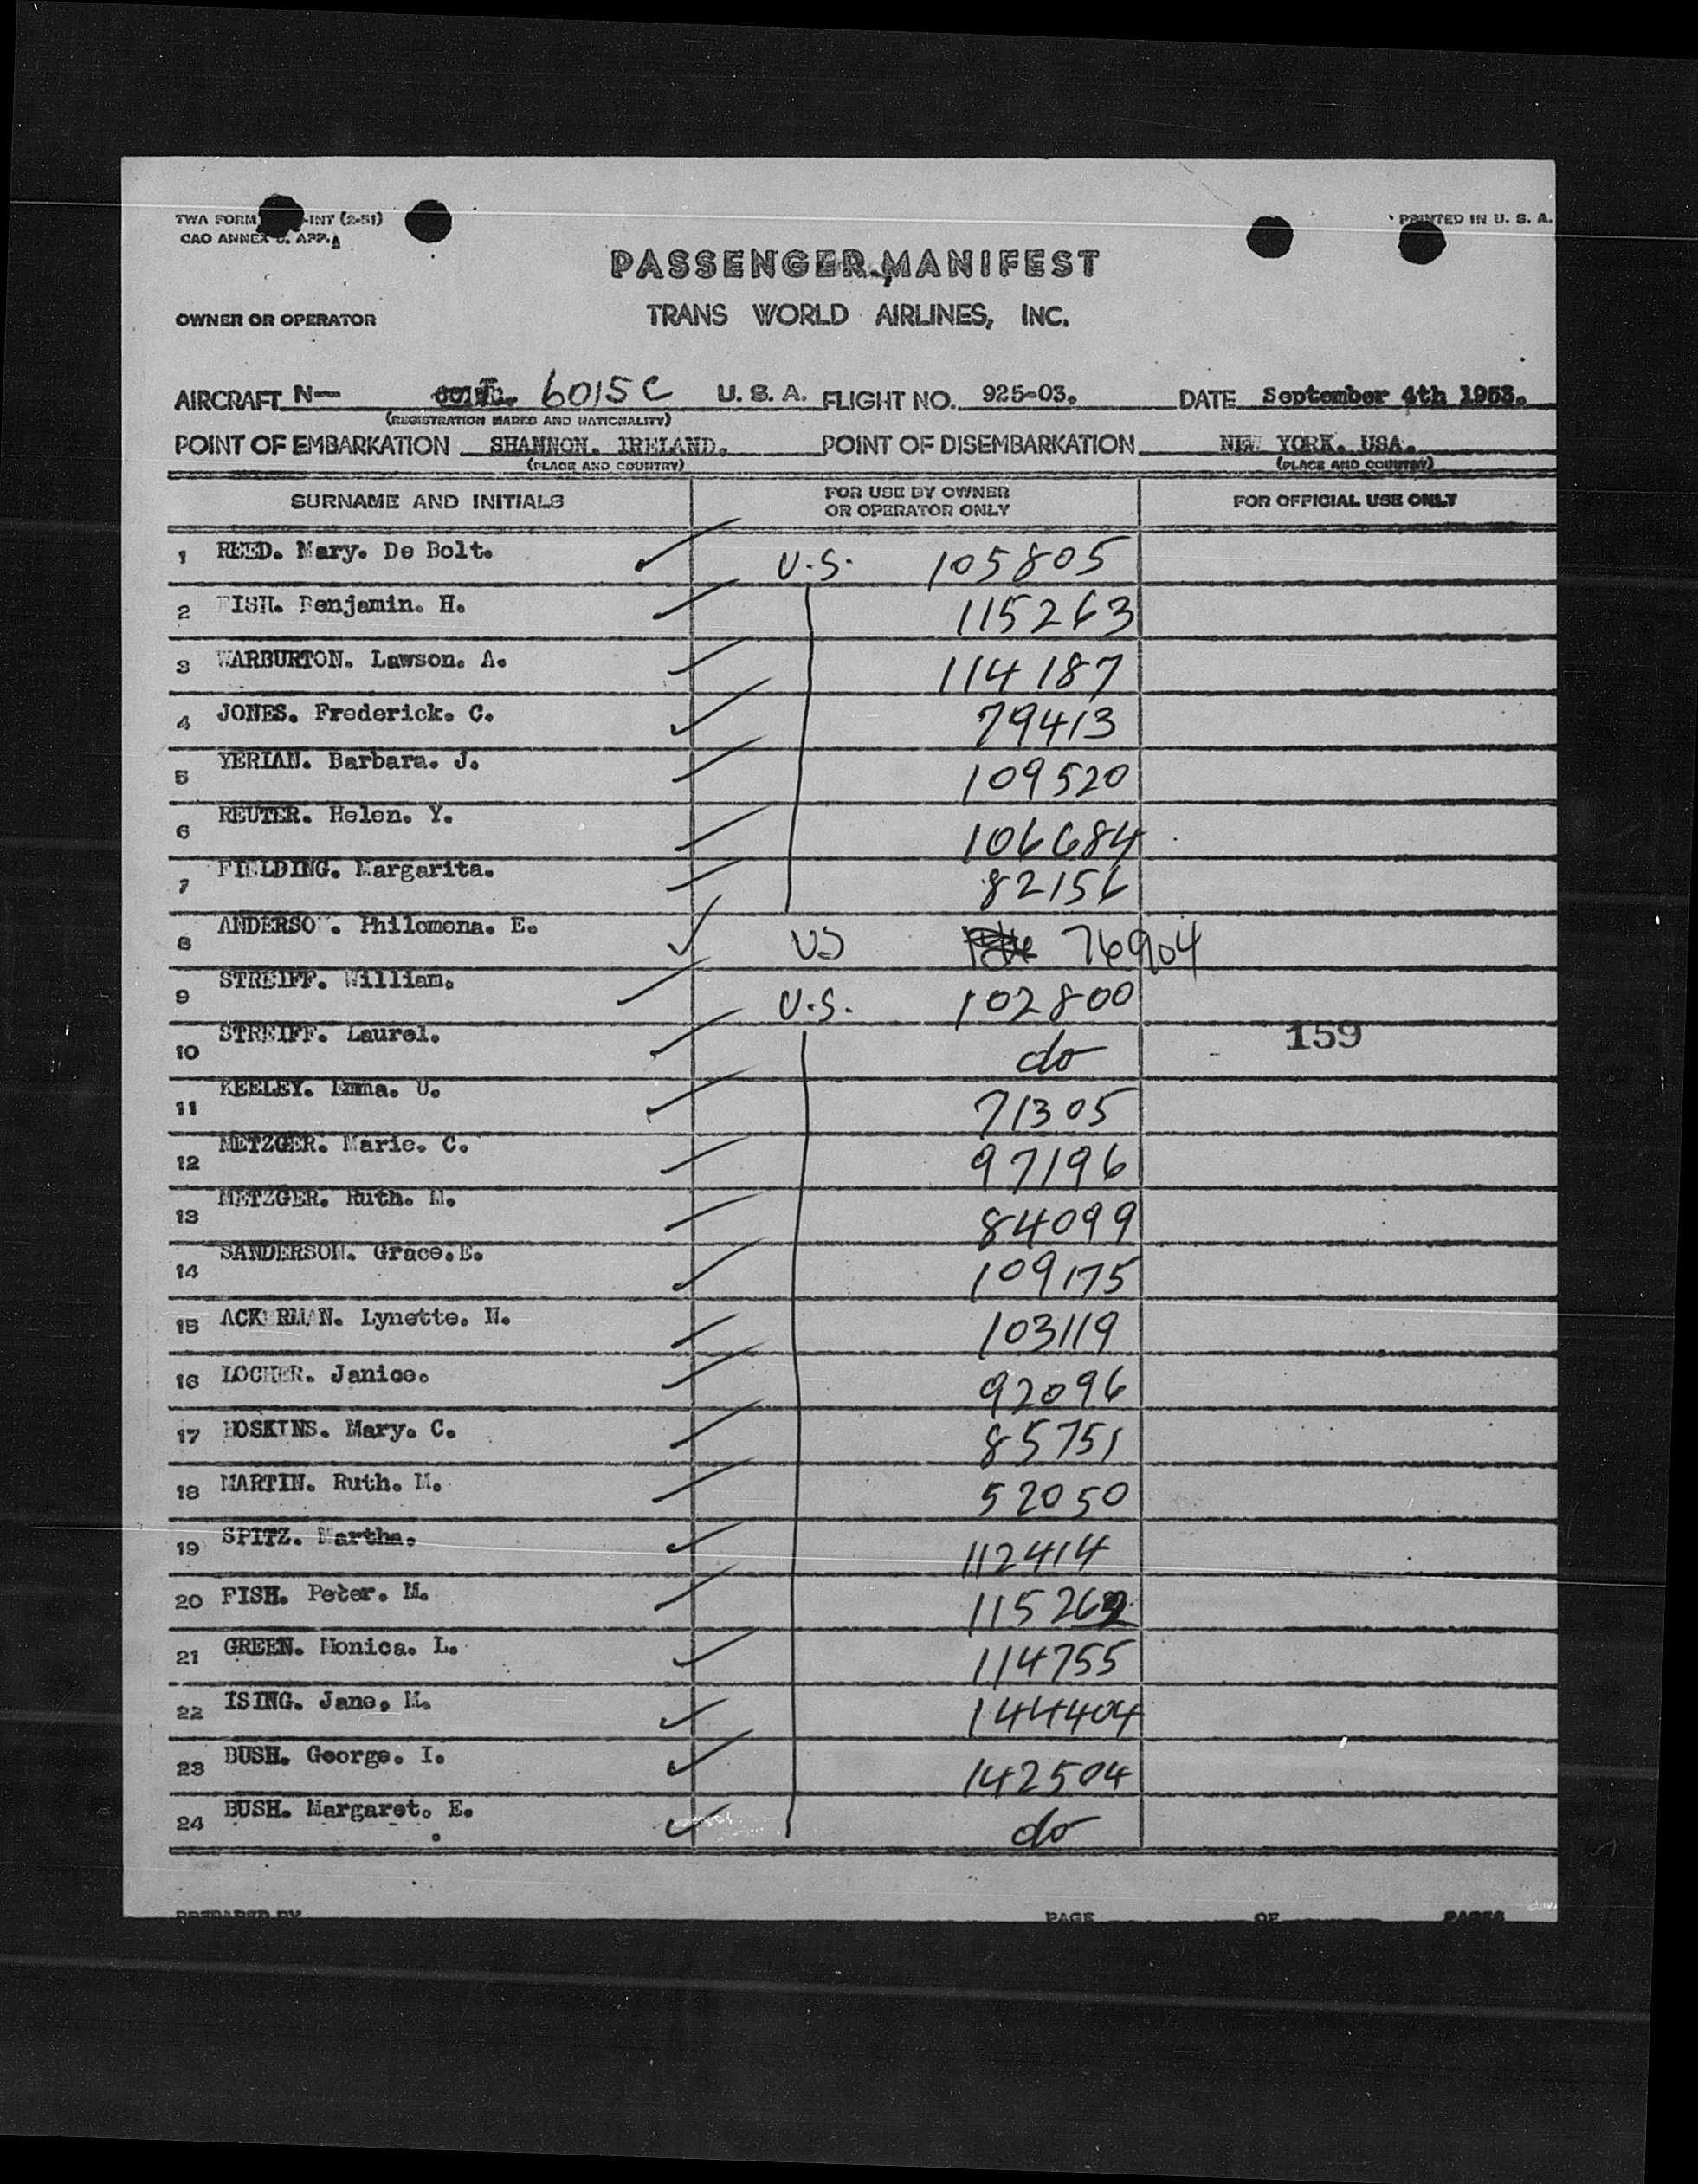 TWA FORM -INT (2-51)
CAO ANNEX APP.
PRINTED IN U. S. A.
PASSENGER MANIFEST
OWNER OR OPERATOR TRANS WORLD AIRLINES, INC.
AIRCRAFT N— 6015C U. S. A. FLIGHT NO. 925-03. DATE September 4th 1953.
(REGISTRATION MARKS AND NATIONALITY)
POINT OF EMBARKATION SHANNON. IRELAND. POINT OF DISEMBARKATION NEW YORK. USA.
(PLACE AND COUNTRY) (PLACE AND COUNTRY)
SURNAME AND INITIALS FOR USE BY OWNER OR OPERATOR ONLY FOR OFFICIAL USE ONLY
1 REED. Mary. De Bolt. U.S. 105805
2 FISH. Benjamin. H. 115263
3 WARBURTON. Lawson. A. 114187
4 JONES. Frederick. C. 79413
5 YERIAN. Barbara. J. 109520
6 REUTER. Helen. Y. 106684
7 FIELDING. Margarita. 82156
8 ANDERSON. Philomena. E. US 76904
9 STREIFF. William. U.S. 102800
10 STREIFF. Laurel. do 159
11 KEELEY. Emma. U. 71305
12 METZGER. Marie. C. 97196
13 METZGER. Ruth. M. 84099
14 SANDERSON. Grace.E. 109175
15 ACKERMAN. Lynette. N. 103119
16 LOCHER. Janice. 92096
17 HOSKINS. Mary. C. 85751
18 MARTIN. Ruth. M. 52050
19 SPITZ. Martha. 112414
20 FISH. Peter. M. 115262
21 GREEN. Monica. L. 114755
22 ISING. Jane, M. 144404
23 BUSH. George. I. 142504
24 BUSH. Margaret. E. do
PREPARED BY PAGE OF PAGES